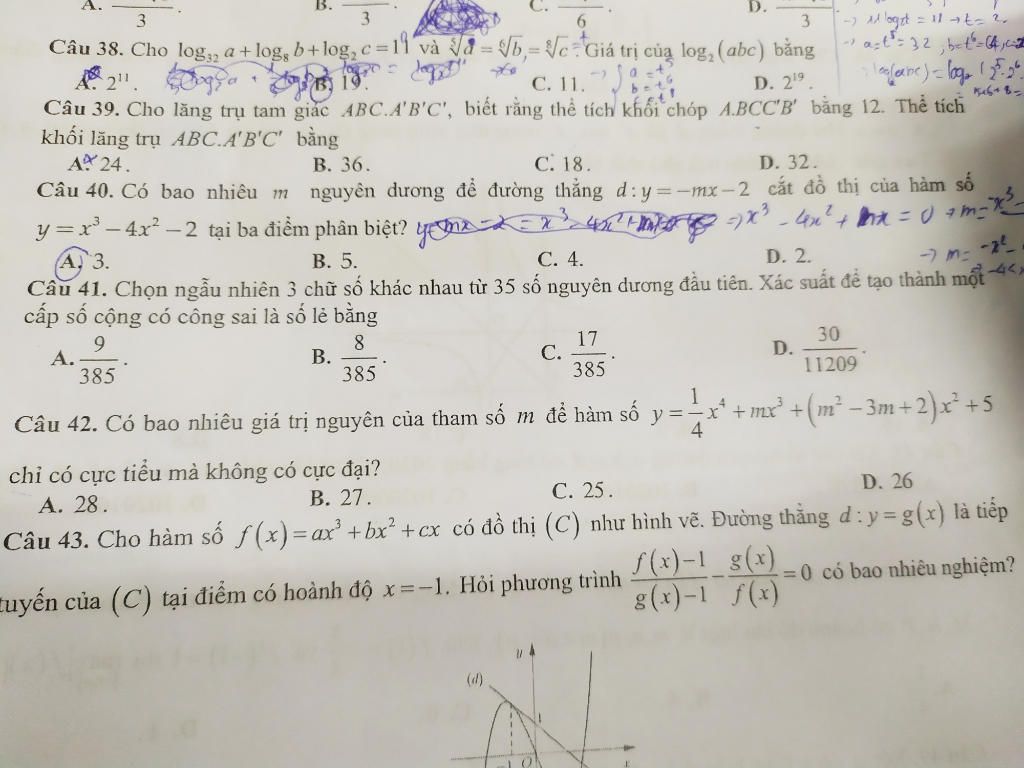 A. 3 . B. 3 . C. 6 . D. 3
Câu 38. Cho log₃₂ a + log₈ b + log₂ c = 11 và ⁵√a = ⁶√b = ⁸√c. Giá trị của log₂(abc) bằng
A. 2¹¹. B. 19. C. 11. D. 2¹⁹.
Câu 39. Cho lăng trụ tam giác ABC.A'B'C', biết rằng thể tích khối chóp A.BCC'B' bằng 12. Thể tích
khối lăng trụ ABC.A'B'C' bằng
A. 24. B. 36. C. 18. D. 32.
Câu 40. Có bao nhiêu m nguyên dương để đường thẳng d : y = −mx − 2 cắt đồ thị của hàm số
y = x³ − 4x² − 2 tại ba điểm phân biệt? => x³ - 4x² + mx = 0
A. 3. B. 5. C. 4. D. 2.
Câu 41. Chọn ngẫu nhiên 3 chữ số khác nhau từ 35 số nguyên dương đầu tiên. Xác suất để tạo thành một
cấp số cộng có công sai là số lẻ bằng
A. 9/385. B. 8/385. C. 17/385. D. 30/11209.
Câu 42. Có bao nhiêu giá trị nguyên của tham số m để hàm số y = 1/4 x⁴ + mx³ + (m² − 3m + 2)x² + 5
chỉ có cực tiểu mà không có cực đại?
A. 28. B. 27. C. 25. D. 26
Câu 43. Cho hàm số f(x) = ax³ + bx² + cx có đồ thị (C) như hình vẽ. Đường thẳng d : y = g(x) là tiếp
tuyến của (C) tại điểm có hoành độ x = −1. Hỏi phương trình (f(x)−1)/(g(x)−1) − g(x)/f(x) = 0 có bao nhiêu nghiệm?
y
(d)
1
−1 O x